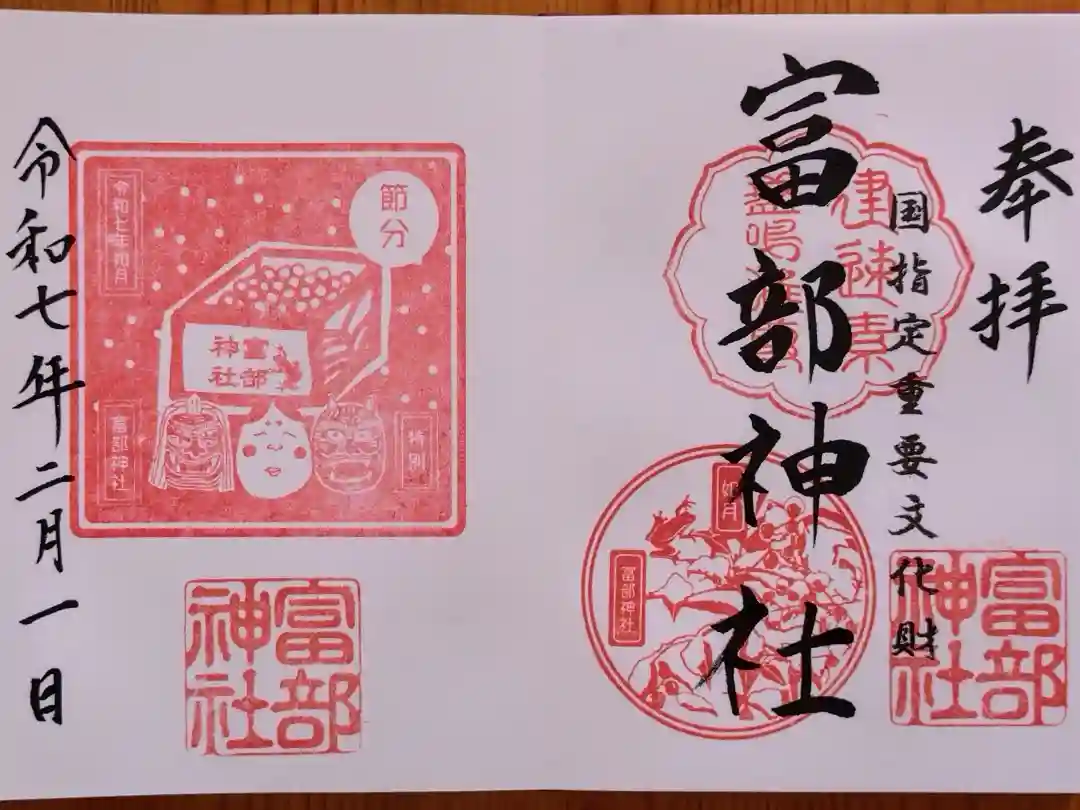 奉拝
国指定重要文化財
富部神社
建速素
盞嗚
如月
富部神社
富部
神社
節分
令和七年如月
富部
神社
特別
富部神社
富部
神社
令和七年二月一日